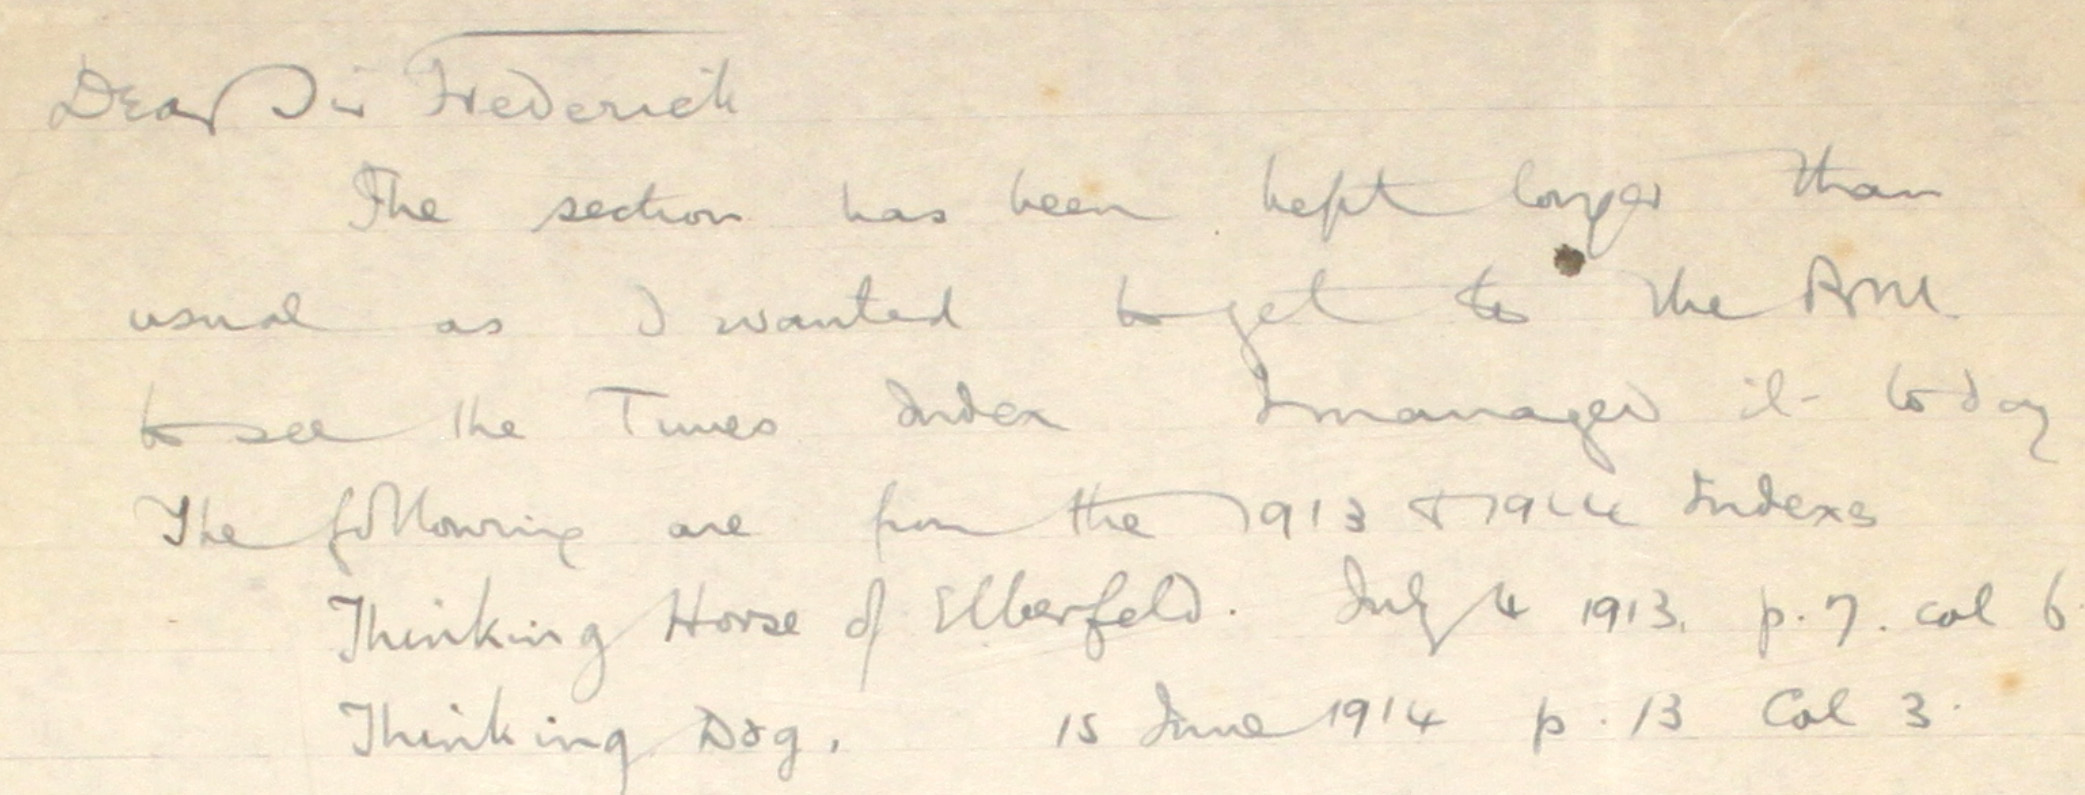 Dear Sir Frederick
The section has been kept longer than
usual as I wanted to get to the B.M.
to see the Times Index I managed it today
The following are from the 1913 & 1914 Indexs
Thinking Horse of Elberfeld. July 4 1913. p. 7. col 6.
Thinking Dog. 15 June 1914 p. 13 Col 3.